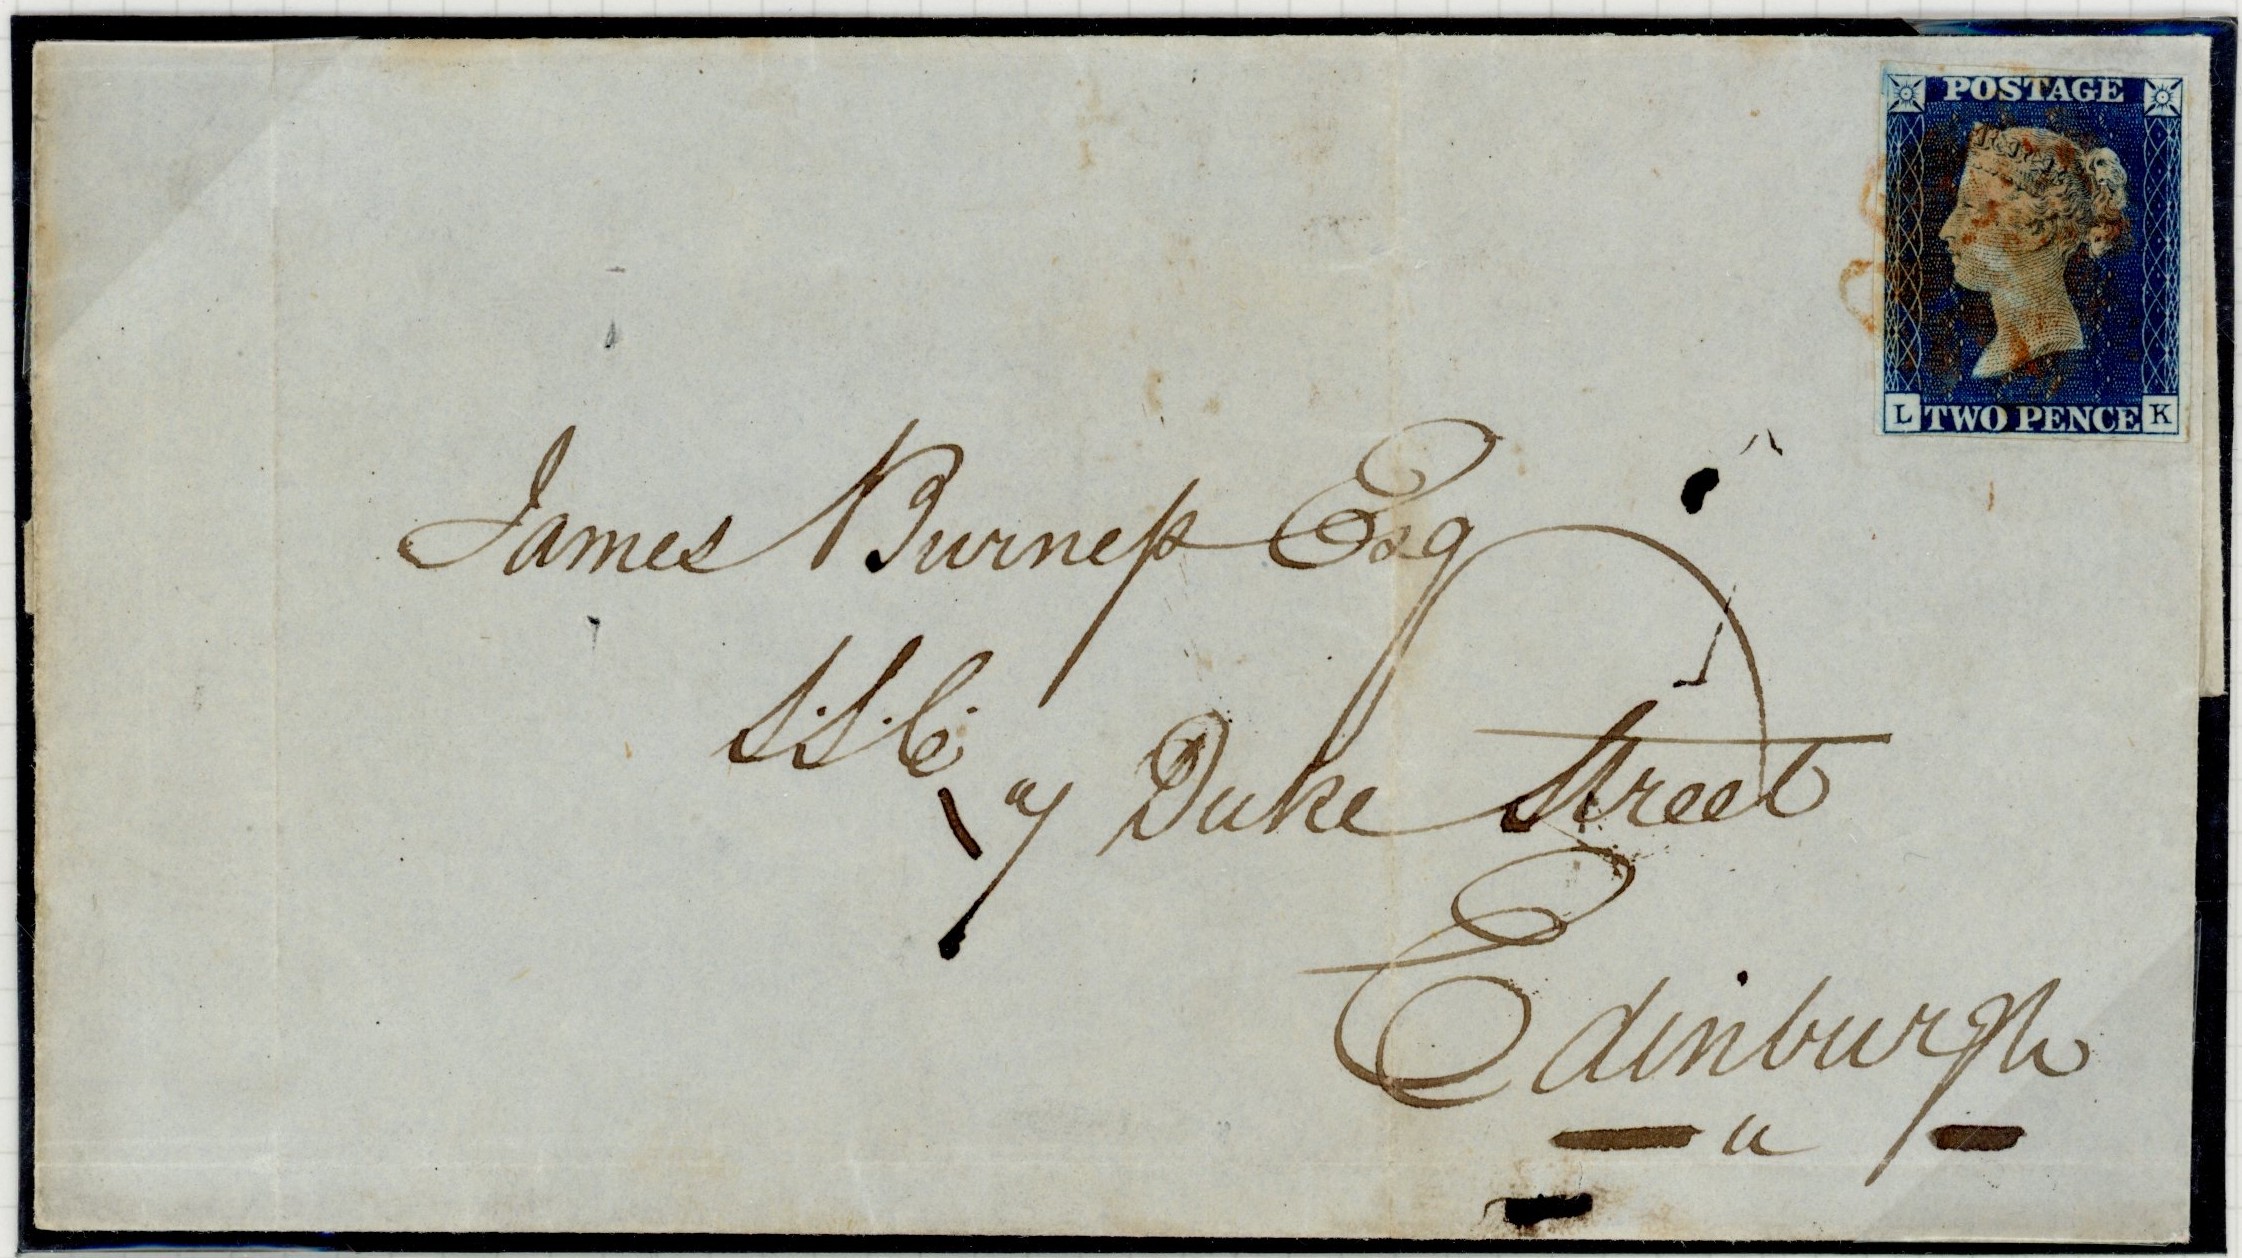 POSTAGE
L TWO PENCE K
James Burness Esq
S.S.C.
7 Duke Street
Edinburgh